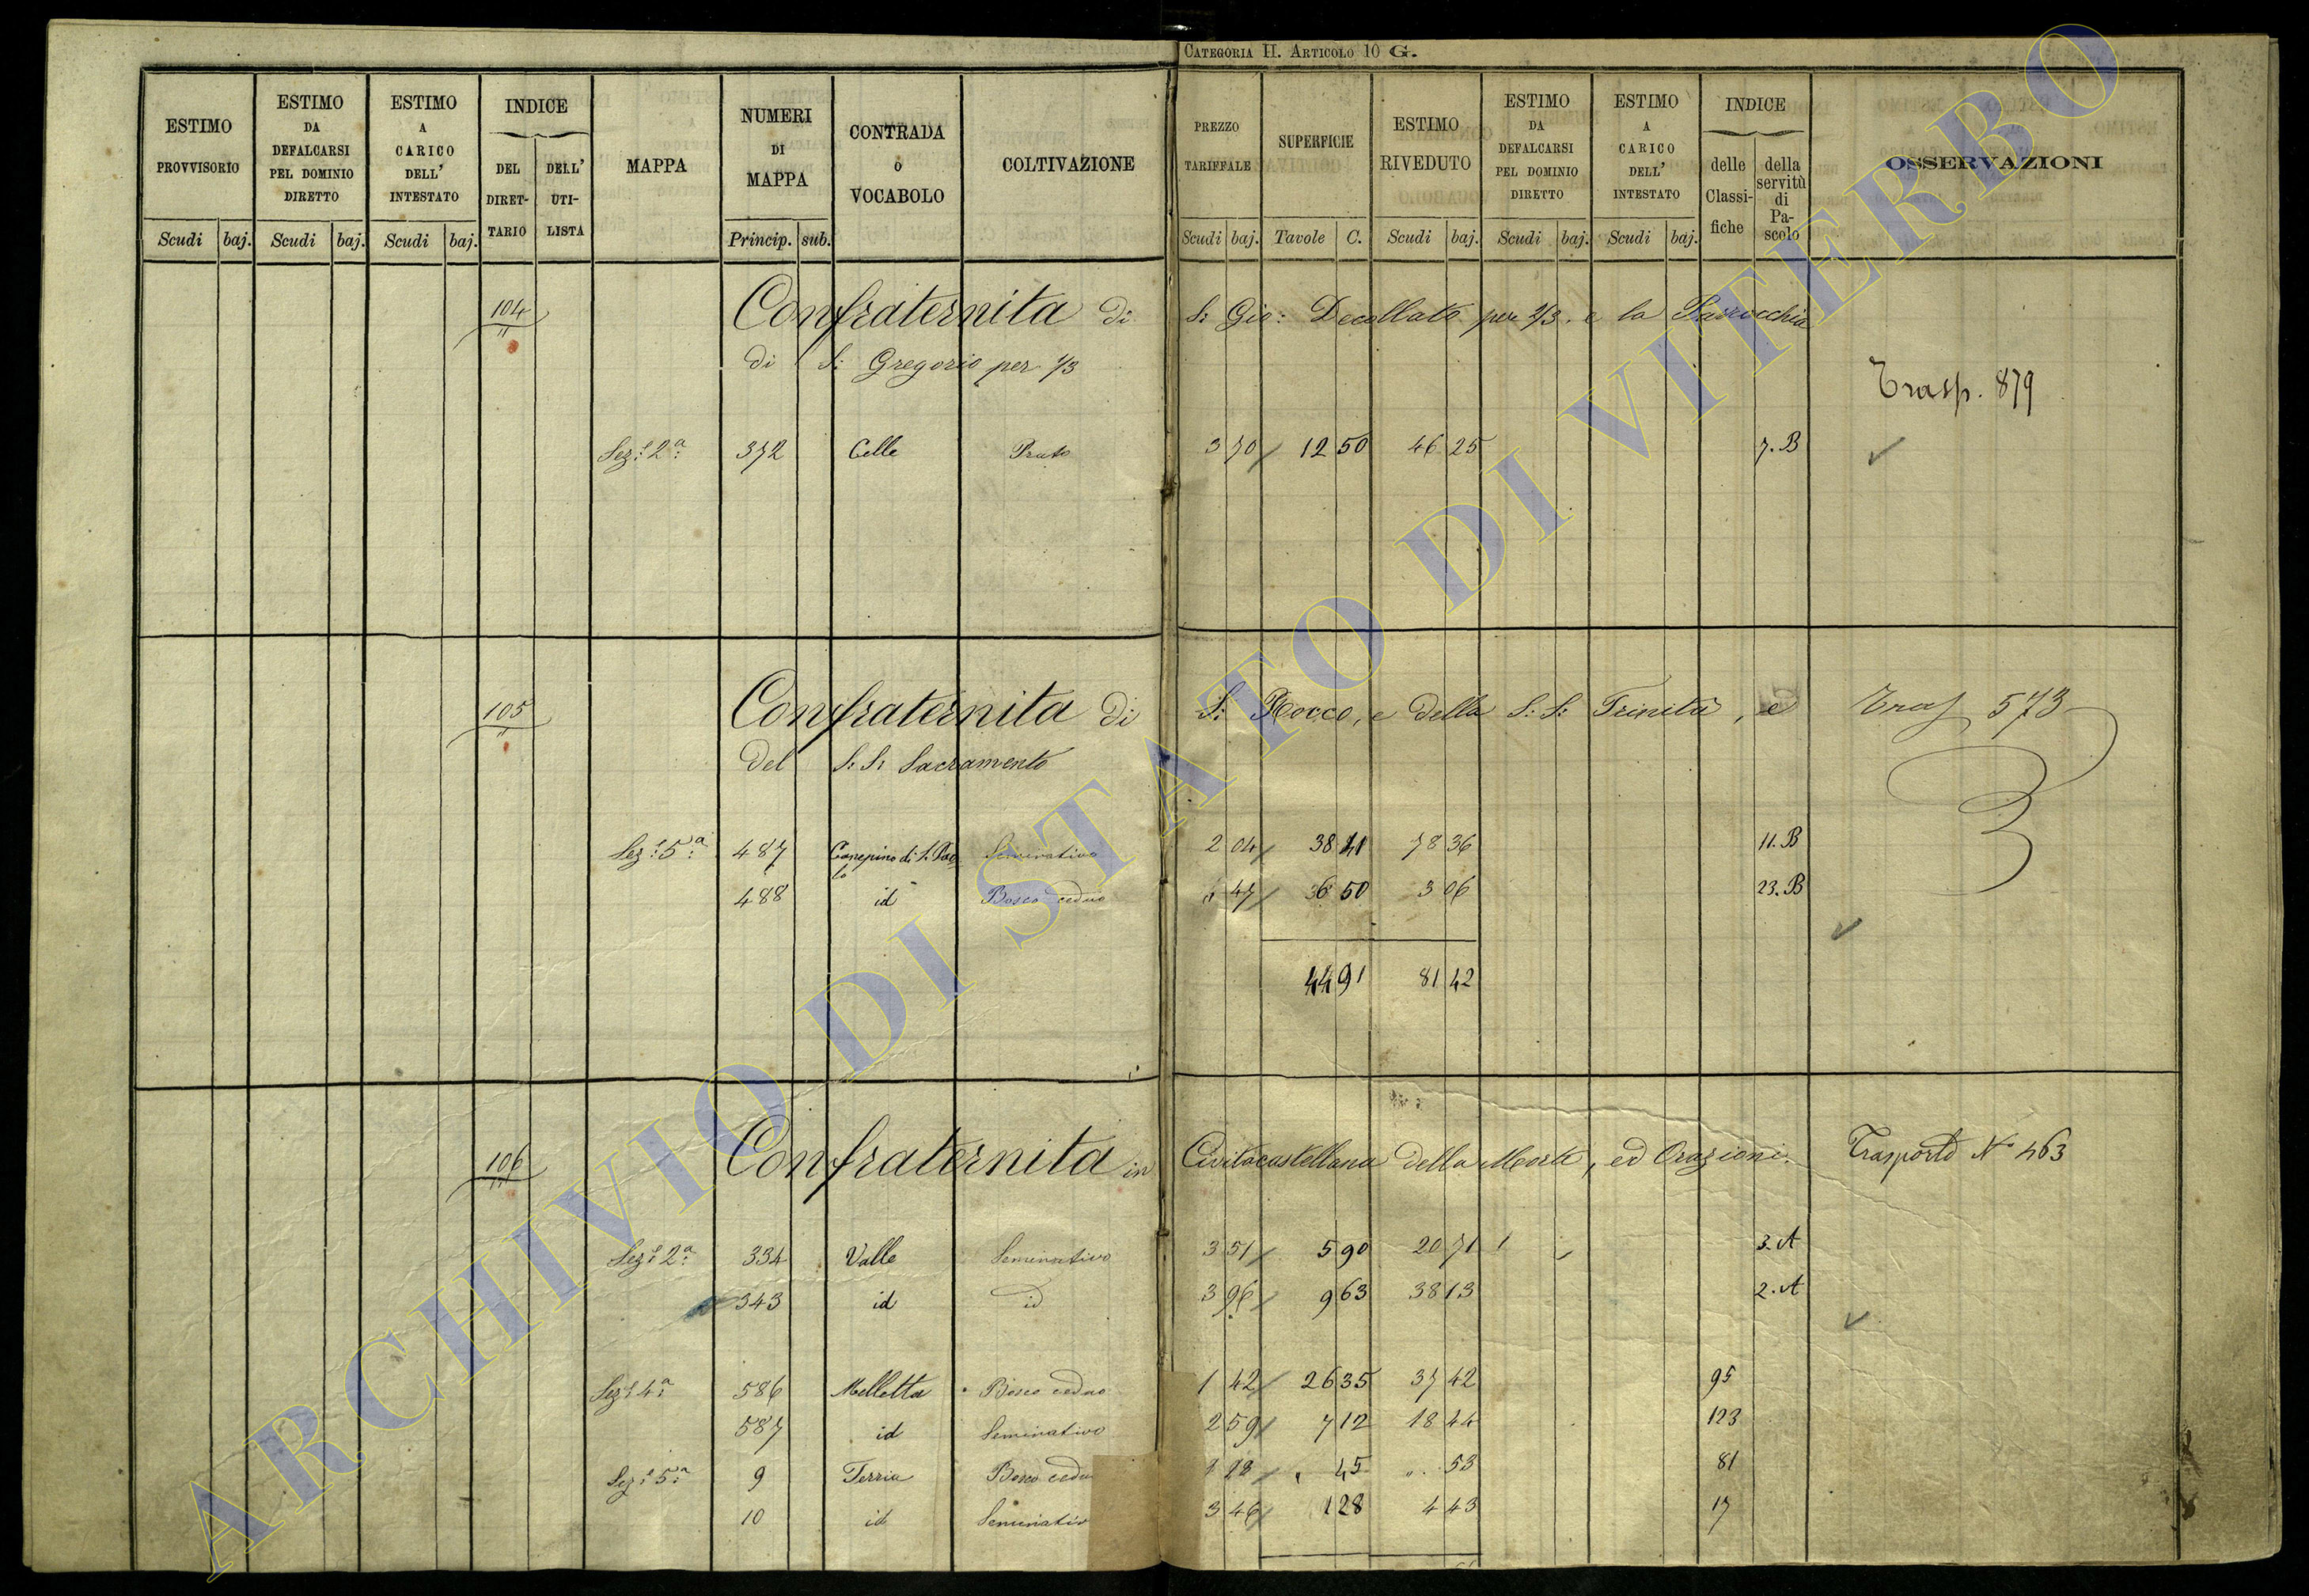 CATEGORIA II. ARTICOLO 10 G.
ESTIMO PROVVISORIO
ESTIMO DA DEFALCARSI PEL DOMINIO DIRETTO
ESTIMO A CARICO DELL' INTESTATO
INDICE
DEL DIRETTARIO
DELL' UTILISTA
MAPPA
NUMERI DI MAPPA
CONTRADA O VOCABOLO
COLTIVAZIONE
PREZZO TARIFFALE
SUPERFICIE
ESTIMO RIVEDUTO
ESTIMO DA DEFALCARSI PEL DOMINIO DIRETTO
ESTIMO A CARICO DELL' INTESTATO
INDICE
delle Classifiche
della servitù di Pascolo
OSSERVAZIONI
Scudi baj. Scudi baj. Scudi baj. Princip. sub. Scudi baj. Tavole C. Scudi baj. Scudi baj. Scudi baj.
104 Confraternita di S: Gio: Decollato per 2/3. e la Parrocchia
di S: Gregorio per 1/3
Trasp. 879
Sez: 2a 372 Celle Prato 3 70 12 50 46 25 7. B
105 Confraternita di S: Rocco, e della S: S: Trinità, e Tras 573
del S: S: Sacramento
Sez: 5a 487 Canepino di S. Paolo Seminativo 2 04 38 41 78 36 11. B
488 id Bosco ceduo " 47 6 50 3 06 23. B
44 91 81 42
106 Confraternita in Civitacastellana della Morte, ed Orazioni. Trasporto No 463
Sez: 2a 334 Valle Seminativo 3 51 5 90 20 71 3. A
343 id id 3 96 9 63 38 13 2. A
Sez: 4a 586 Melletta Bosco ceduo 1 42 26 35 37 42 95
587 id Seminativo 2 59 7 12 18 44 123
Sez: 5a 9 Terria Bosco cedu 1 18 " 45 " 53 81
10 id Seminativ 3 46 1 28 4 43 17
ARCHIVIO DI STATO DI VITERBO